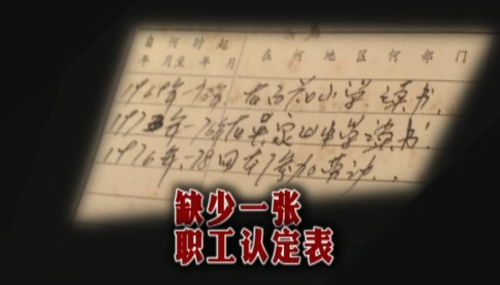 自何时起 在何地区何部门
年月至年月
1969年-7 年 在 小学读书
1973年-76在吴家山中学读书
1976年-78回本 参加劳动
缺少一张
职工认定表